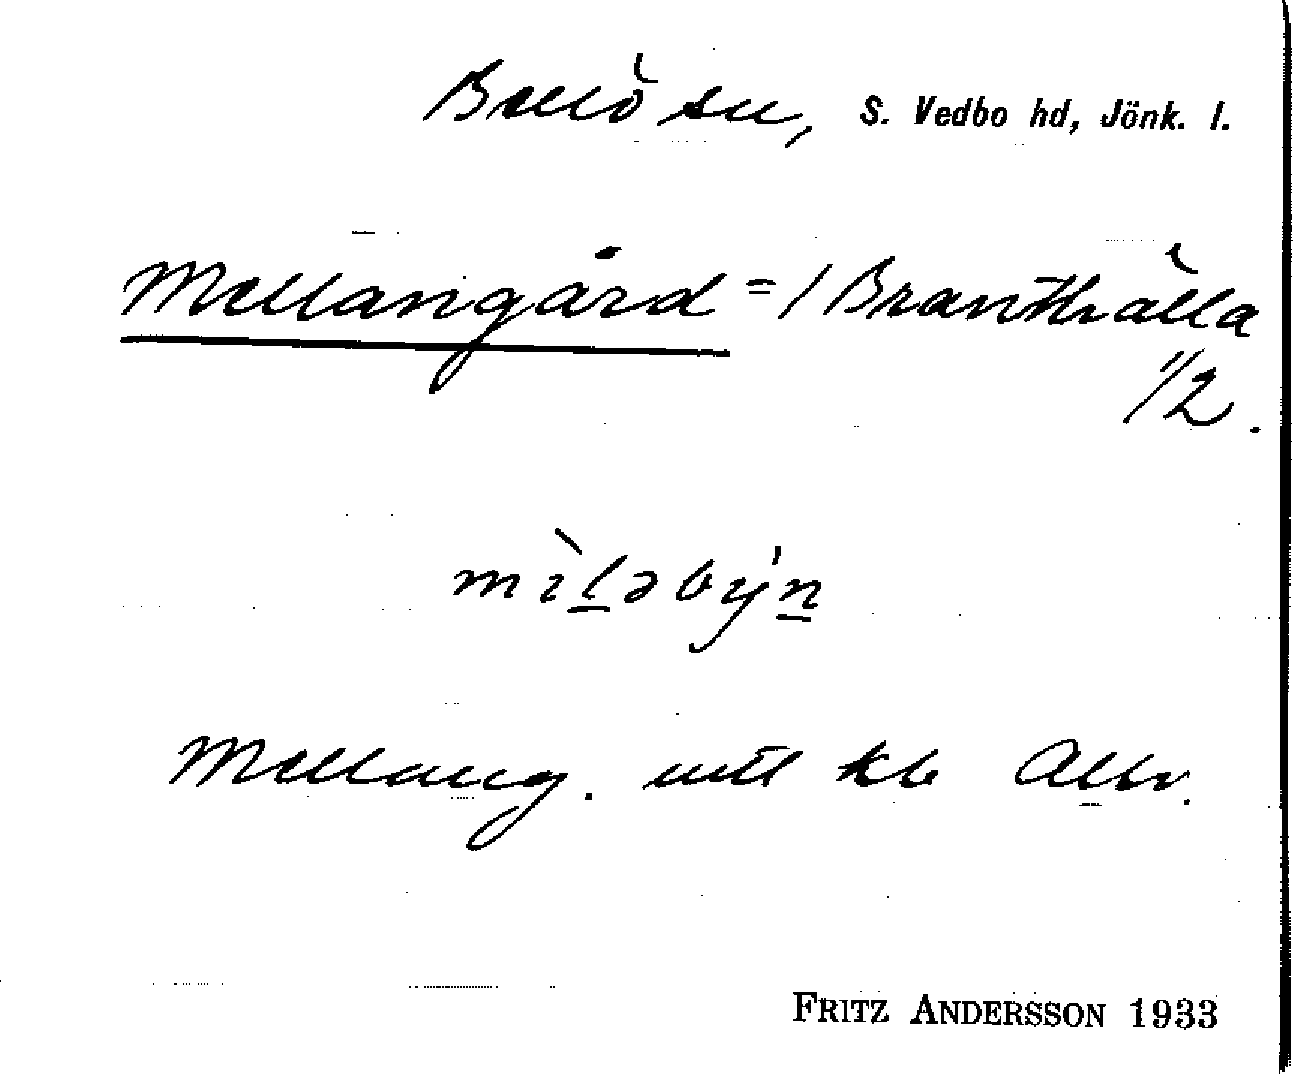 Bellö sn, S. Vedbo hd, Jönk. l.
Mellangård = / Branthälla
1/2.
mìləbýn
Mellang. utt kb Allm.
FRITZ ANDERSSON 1933